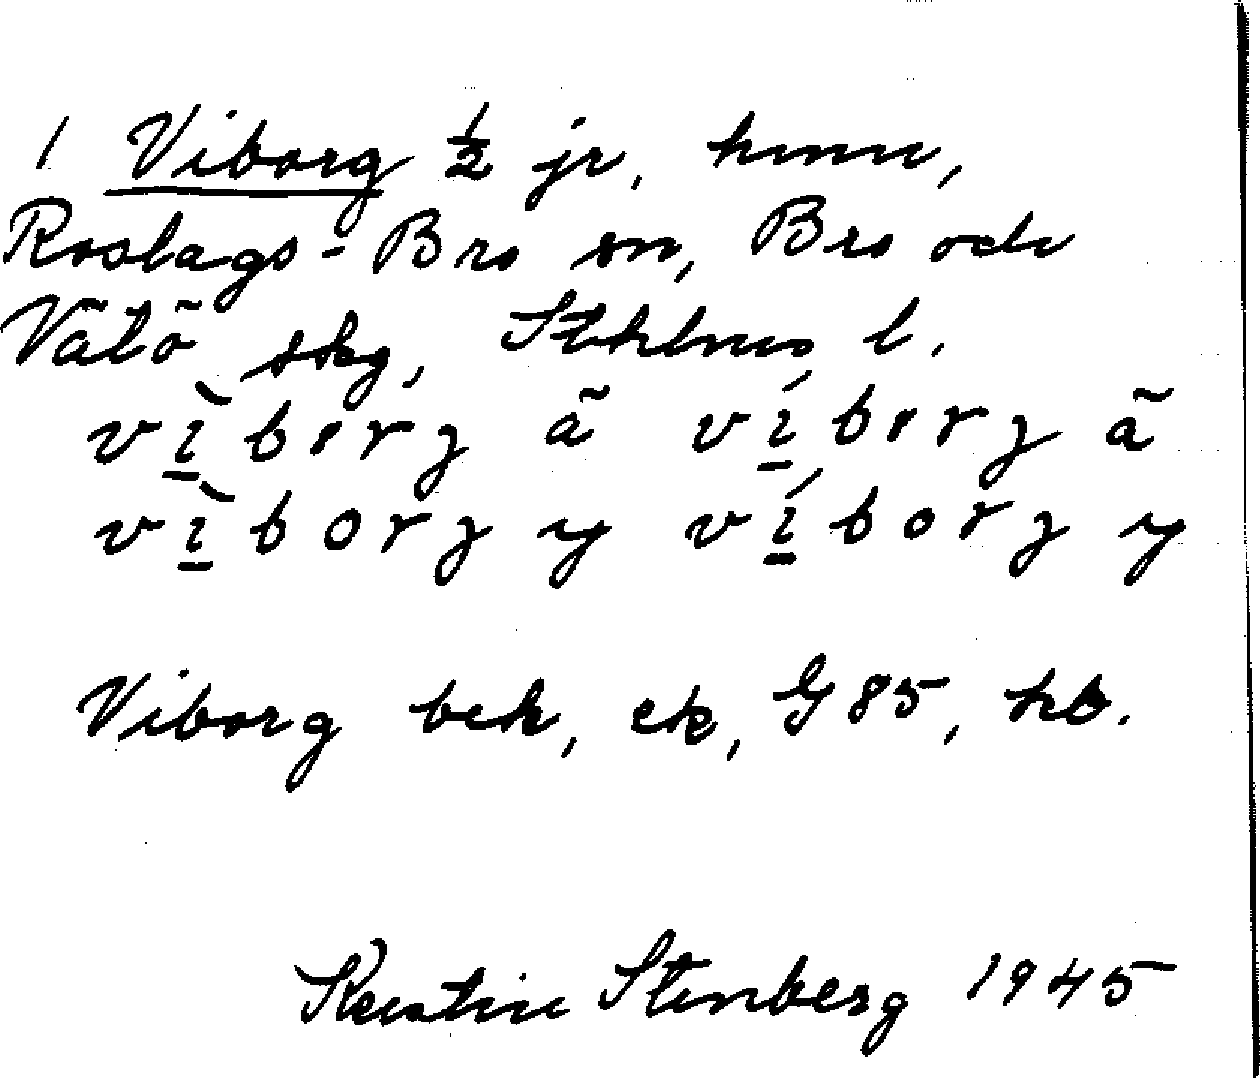 1 Viborg ½ jr, hmn,
Roslags-Bro sn, Bro och
Vätö skg, Sthlms l.
vì̱borg ã ví̱borg ã
vì̱borg y ví̱borg y
Viborg bek, ek, G85, hb.
Kerstin Stenberg 1945